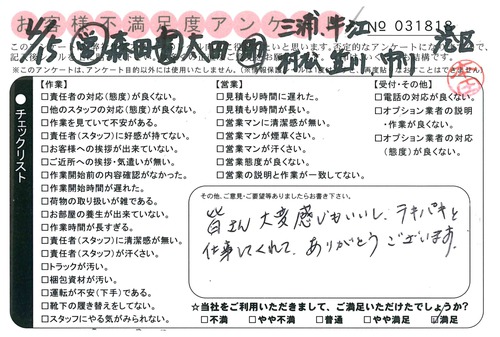 お客様不満足度アンケート
三浦、牛江
№ 031818
6/15 営 森田 太田
港区
※このアンケートは、アンケート目的以外には使用いたしません。
チェックリスト
【作業】
□責任者の対応(態度)が良くない。
□他のスタッフの対応(態度)が良くない。
□作業を見ていて不安がある。
□責任者(スタッフ)に好感が持てない。
□お客様への挨拶が出来ていない。
□ご近所への挨拶・気遣いが無い。
□作業開始前の内容確認がなかった。
□作業開始時間が遅れた。
□荷物の取り扱いが雑である。
□お部屋の養生が出来ていない。
□作業時間が長すぎる。
□責任者(スタッフ)に清潔感が無い。
□責任者(スタッフ)が汗くさい。
□トラックが汚い。
□梱包資材が汚い。
□運転が不安(下手)である。
□靴下の履き替えをしてない。
□スタッフにやる気がみられない。
【営業】
□見積もり時間に遅れた。
□見積もり時間が長い。
□営業マンに清潔感が無い。
□営業マンが煙草くさい。
□営業マンが汗くさい。
□営業態度が良くない。
□営業の説明と作業が一致してない。
【受付・その他】
□電話の対応が良くない。
□オプション業者の説明
・作業が良くない。
□オプション業者の対応
(態度)が良くない。
その他、ご意見・ご要望等ありましたらお書き下さい。
皆さん 大変感じもいいし、テキパキと
仕事してくれて、ありがとうございます。
☆当社をご利用いただきまして、ご満足いただけたでしょうか
□不満 □やや不満 □普通 □やや満足 ☑満足